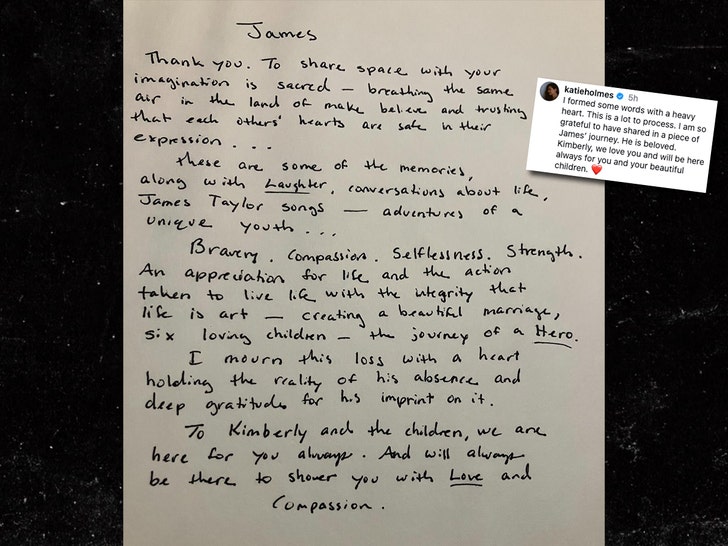 James
Thank you. To share space with your
imagination is sacred — breathing the same
air in the land of make believe and trusting
that each others' hearts are safe in their
expression . . .
these are some of the memories,
along with Laughter, conversations about life,
James Taylor songs — adventures of a
unique youth . . .
Bravery. Compassion. Selflessness. Strength.
An appreciation for life and the action
taken to live life with the integrity that
life is art — creating a beautiful marriage,
six loving children — the journey of a Hero.
I mourn this loss with a heart
holding the reality of his absence and
deep gratitude for his imprint on it.
To Kimberly and the children, we are
here for you always. And will always
be there to shower you with Love and
Compassion.
katieholmes 5h
I formed some words with a heavy
heart. This is a lot to process. I am so
grateful to have shared in a piece of
James' journey. He is beloved.
Kimberly, we love you and will be here
always for you and your beautiful
children. ❤️